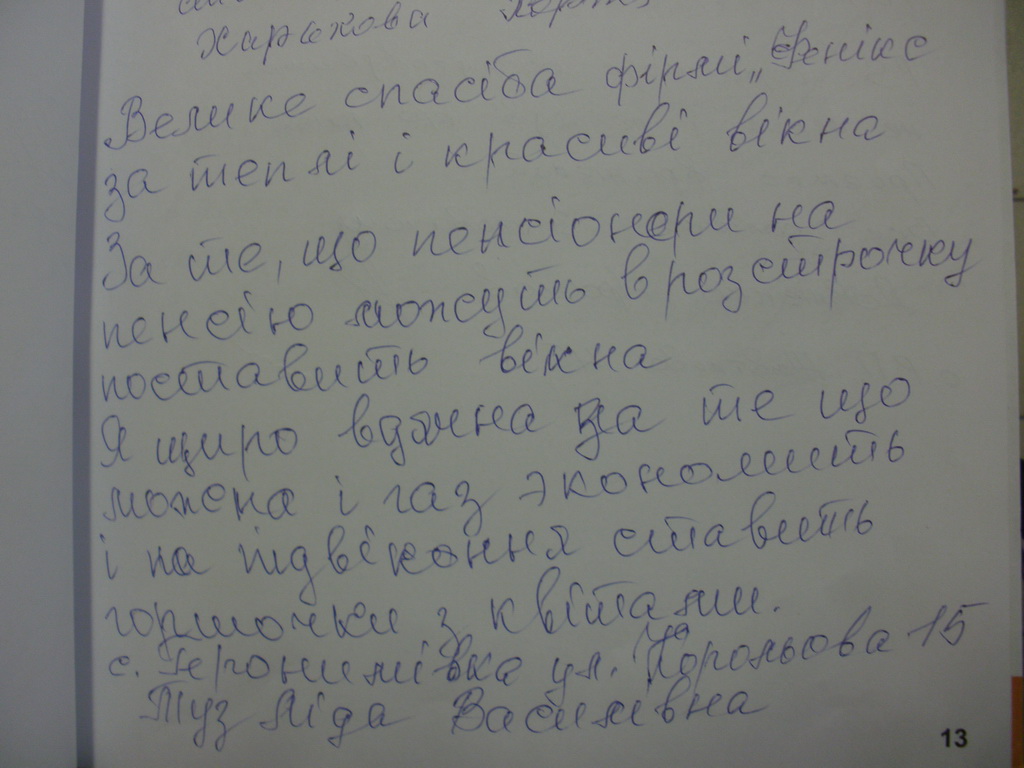 Харькова
Велике спасіба фірмі „Фенікс
за теплі і красиві вікна
За те, що пенсіонери на
пенсію можуть в розстрочку
поставить вікна
Я щиро вдячна за те що
можена і газ экономить
і на підвіконня ставить
горшочки з квітами.
с. Геронимівка ул. Корольова 15
Туз Ліда Василівна
13